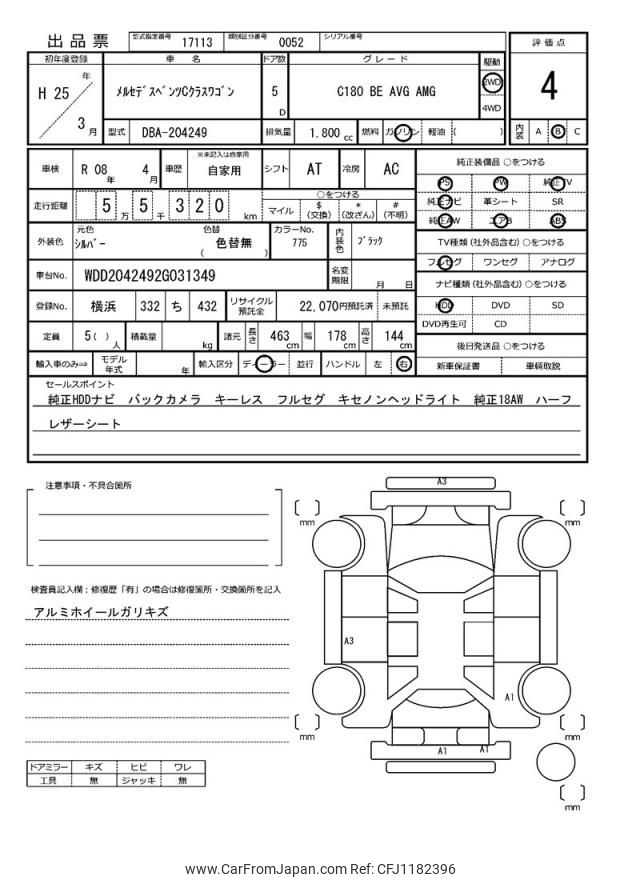 出品票 型式指定番号 17113 類別区分番号 0052 シリアル番号
初年度登録 車名 ドア数 グレード 駆動 評価点
H 25 年 3 月 ﾒﾙｾﾃﾞｽﾍﾞﾝﾂCｸﾗｽﾜｺﾞﾝ 5 D C180 BE AVG AMG 2WD 4WD 4
型式 DBA-204249 排気量 1.800 cc 燃料 ガソリン 軽油 ( ) 内装 A B C
車検 R 08 年 4 月 車歴 ※未記入は自家用 自家用 シフト AT 冷房 AC
走行距離 5 万 5 千 3 2 0 km ○をつける マイル $ (交換) * (改ざん) # (不明)
外装色 元色 ｼﾙﾊﾞｰ 色替 色替無 ( ) カラーNo. 775 内装色 ﾌﾞﾗｯｸ
車台No. WDD2042492G031349 名変期限 月 日
登録No. 横浜 332 ち 432 リサイクル預託金 22,070円預託済 未預託
定員 5 ( ) 人 積載量 kg 諸元 長さ 463 cm 幅 178 cm 高さ 144 cm
輸入車のみ⇒ モデル年式 年 輸入区分 ディーラー 並行 ハンドル 左 右
純正装備品 ○をつける
PS PW 純正TV
純正ナビ 革シート SR
純正AW エアB ABS
TV種類 (社外品含む) ○をつける
フルセグ ワンセグ アナログ
ナビ種類 (社外品含む) ○をつける
HDD DVD SD
DVD再生可 CD
後日発送品 ○をつける
新車保証書 車輌取説
セールスポイント
純正HDDナビ バックカメラ キーレス フルセグ キセノンヘッドライト 純正18AW ハーフ
レザーシート
注意事項・不具合箇所
検査員記入欄：修復歴「有」の場合は修復箇所・交換箇所を記入
アルミホイールガリキズ
ドアミラー キズ ヒビ ワレ
工具 無 ジャッキ 無
A3
mm
mm
A3
A1
mm
mm
A1
A1
mm
www.CarFromJapan.com Ref: CFJ1182396